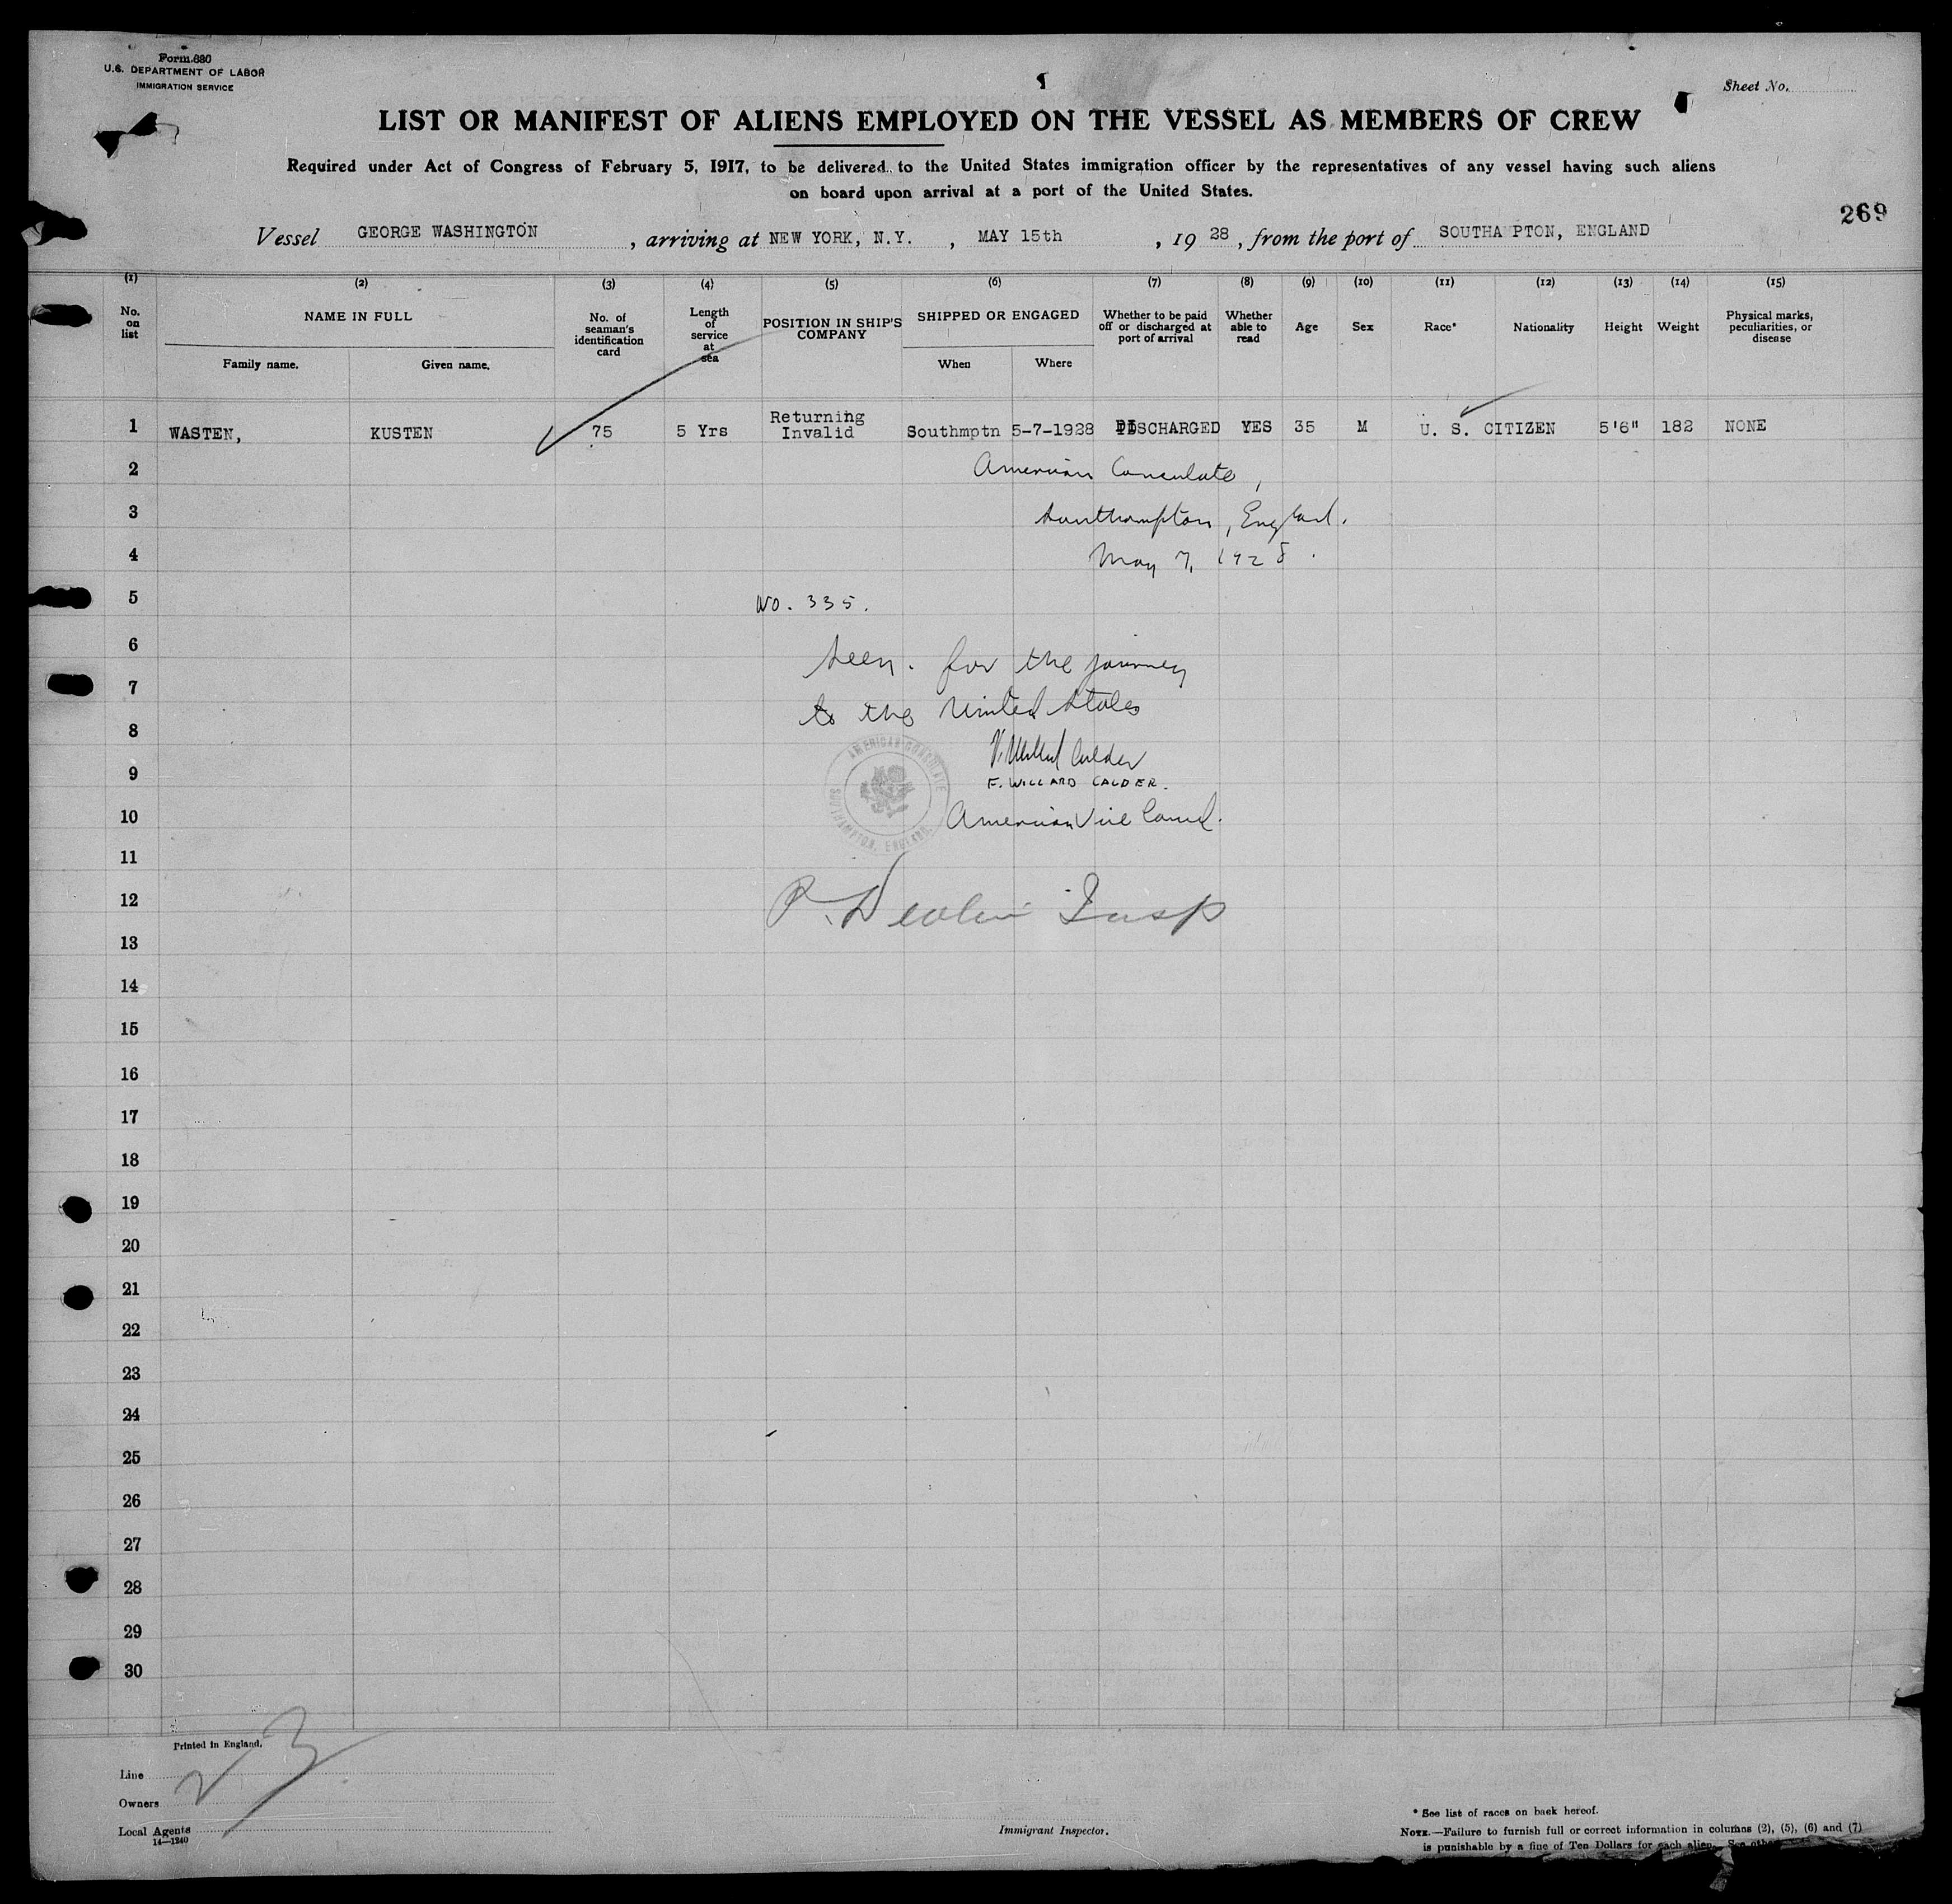 Form 680
U.S. DEPARTMENT OF LABOR
IMMIGRATION SERVICE
Sheet No.
LIST OR MANIFEST OF ALIENS EMPLOYED ON THE VESSEL AS MEMBERS OF CREW
Required under Act of Congress of February 5, 1917, to be delivered to the United States immigration officer by the representatives of any vessel having such aliens
on board upon arrival at a port of the United States.
269
Vessel GEORGE WASHINGTON, arriving at NEW YORK, N.Y., MAY 15th, 19 28, from the port of SOUTHA PTON, ENGLAND
(1) (2) (3) (4) (5) (6) (7) (8) (9) (10) (11) (12) (13) (14) (15)
No. on list NAME IN FULL No. of seaman's identification card Length of service at sea POSITION IN SHIP'S COMPANY SHIPPED OR ENGAGED Whether to be paid off or discharged at port of arrival Whether able to read Age Sex Race* Nationality Height Weight Physical marks, peculiarities, or disease
Family name. Given name. When Where
1 WASTEN, KUSTEN 75 5 Yrs Returning Invalid Southmptn 5-7-1928 DISCHARGED YES 35 M U. S. CITIZEN 5'6" 182 NONE
2 American Consulate,
3 Southampton, England.
4 May 7, 1928.
5 No. 335.
6 Seen. for the journey
7 to the United States
8
F. Willard Calder
9 F. WILLARD CALDER.
AMERICAN CONSULATE SOUTHAMPTON, ENGLAND.
10 American Vice Consul.
11
12 P. Devlin Insp
13
14
15
16
17
18
19
20
21
22
23
24
25
26
27
28
29
30
Printed in England.
23
Line
Owners
Local Agents
14—1240
Immigrant Inspector.
* See list of races on back hereof.
NOTE.—Failure to furnish full or correct information in columns (2), (5), (6) and (7)
is punishable by a fine of Ten Dollars for each alien. See